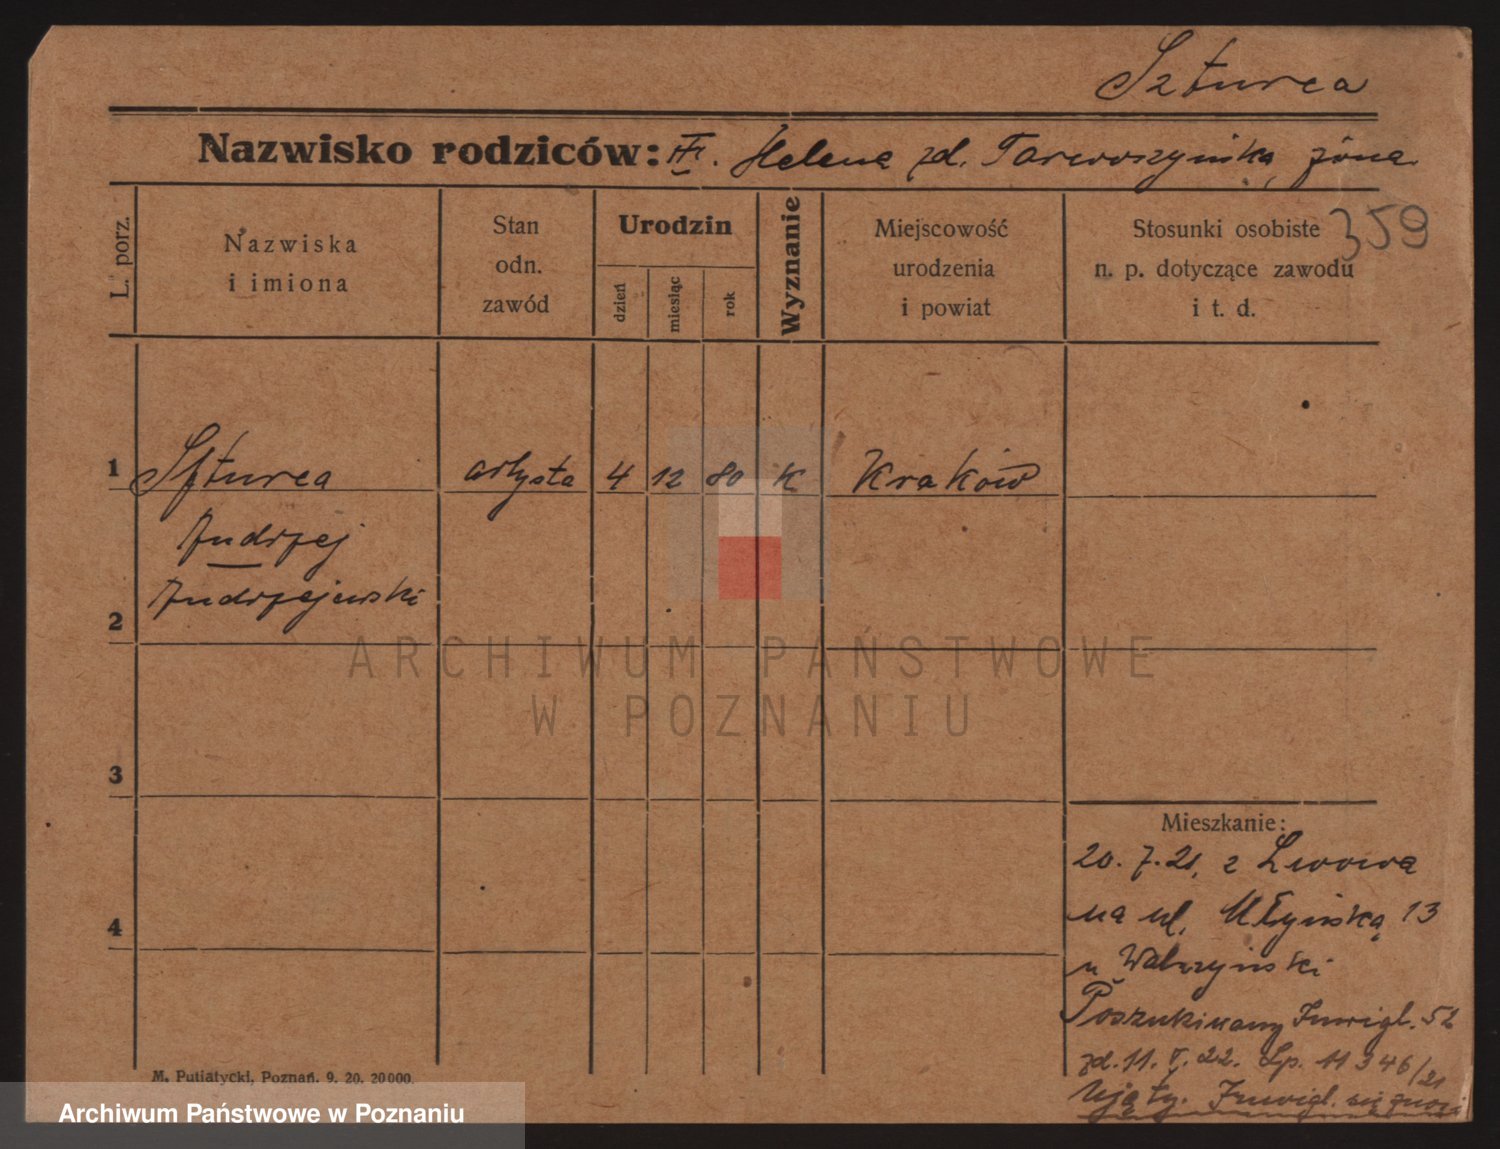 Szturca
Nazwisko rodziców: Helena zd. żona
359
L. porz.
Nazwiska
i imiona
Stan
odn.
zawód
Urodzin
dzień
miesiąc
rok
Wyznanie
Miejscowość
urodzenia
i powiat
Stosunki osobiste
n. p. dotyczące zawodu
i t. d.
1 Szturca artysta 4 12 80 K Kraków
Andrzej
Andrzejewski
2
3
4
Mieszkanie:
20. 7. 21, z Lwowa
na ul. Młyńską 13
u Wabrzyński
Poszukiwany Inwigl. 52
zd. 11. V. 22. Lp. 11346/21
Ujęty. Inwigl. się znosi
M. Putiatycki, Poznań. 9. 20. 20000.
ARCHIWUM PAŃSTWOWE
W POZNANIU
Archiwum Państwowe w Poznaniu